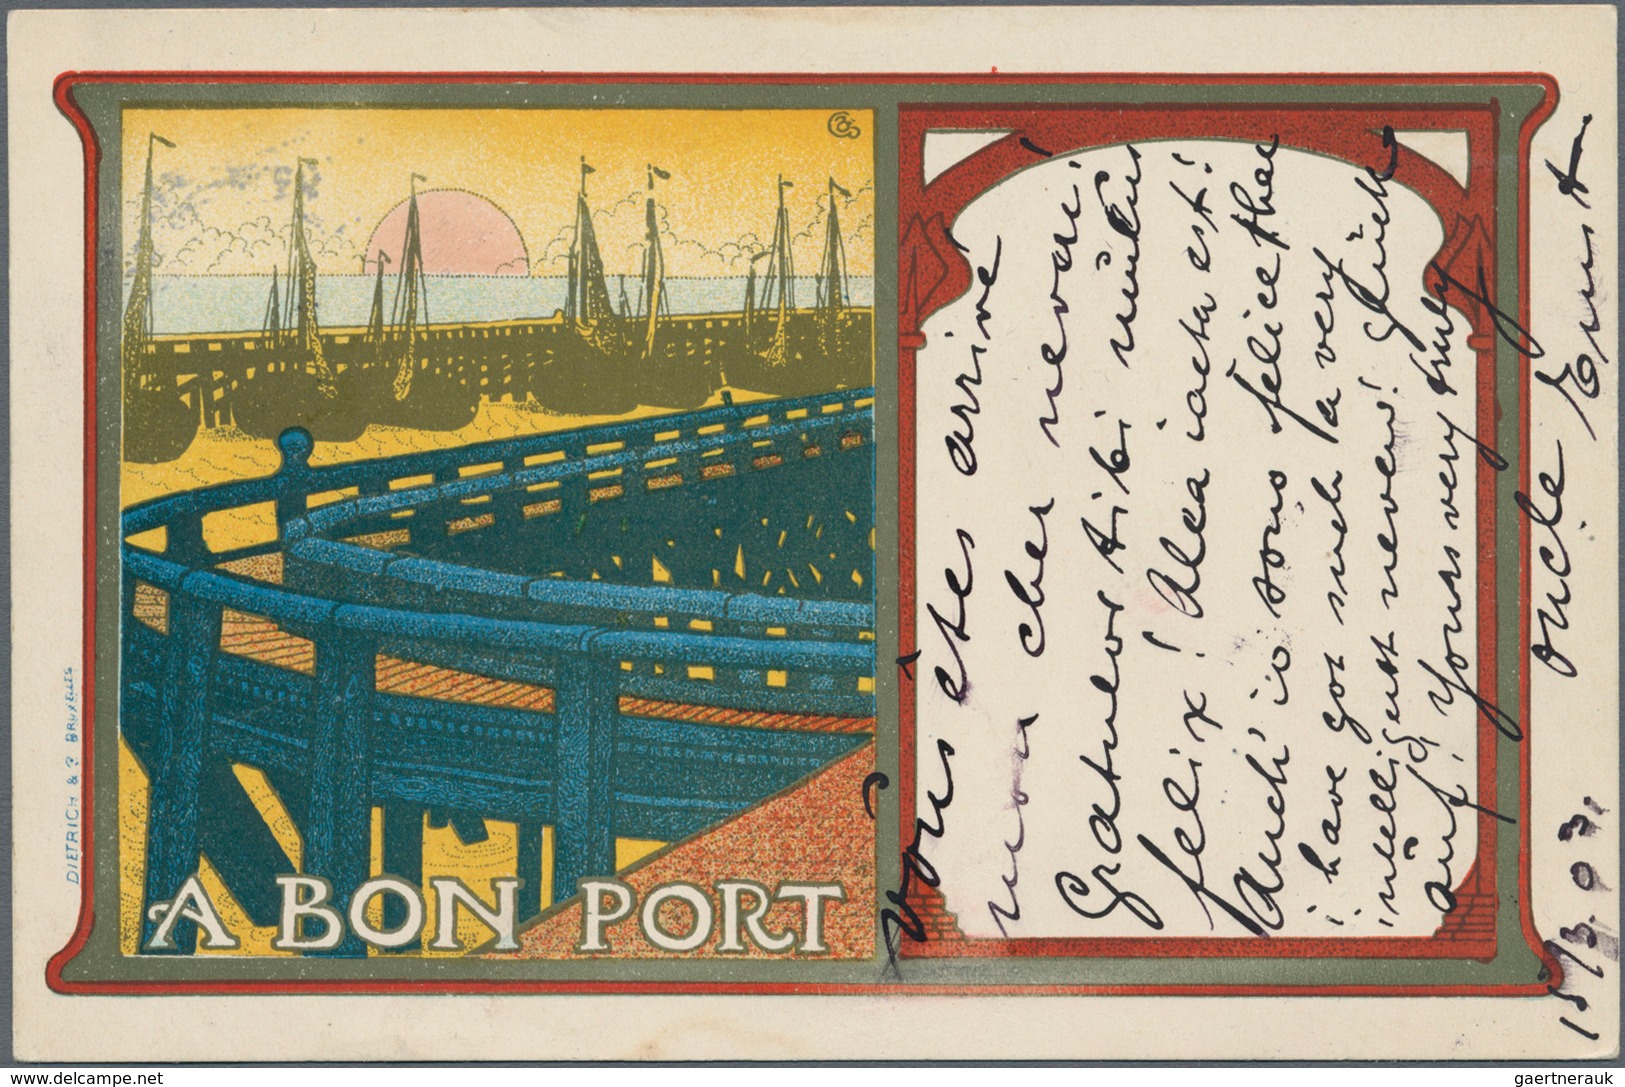 DIETRICH & Cº BRUXELLES
A BON PORT
vous êtes arrivé
mon cher neveu!
Gratulor tibi nuntius
felix! Alea iacta est!
Anch' io sono felice that
i have got such la very
intelligent neveu! Glück
auf! Yours very truly
oncle Ernst
15/3. 03.
delcampe.net
gaertnerauk